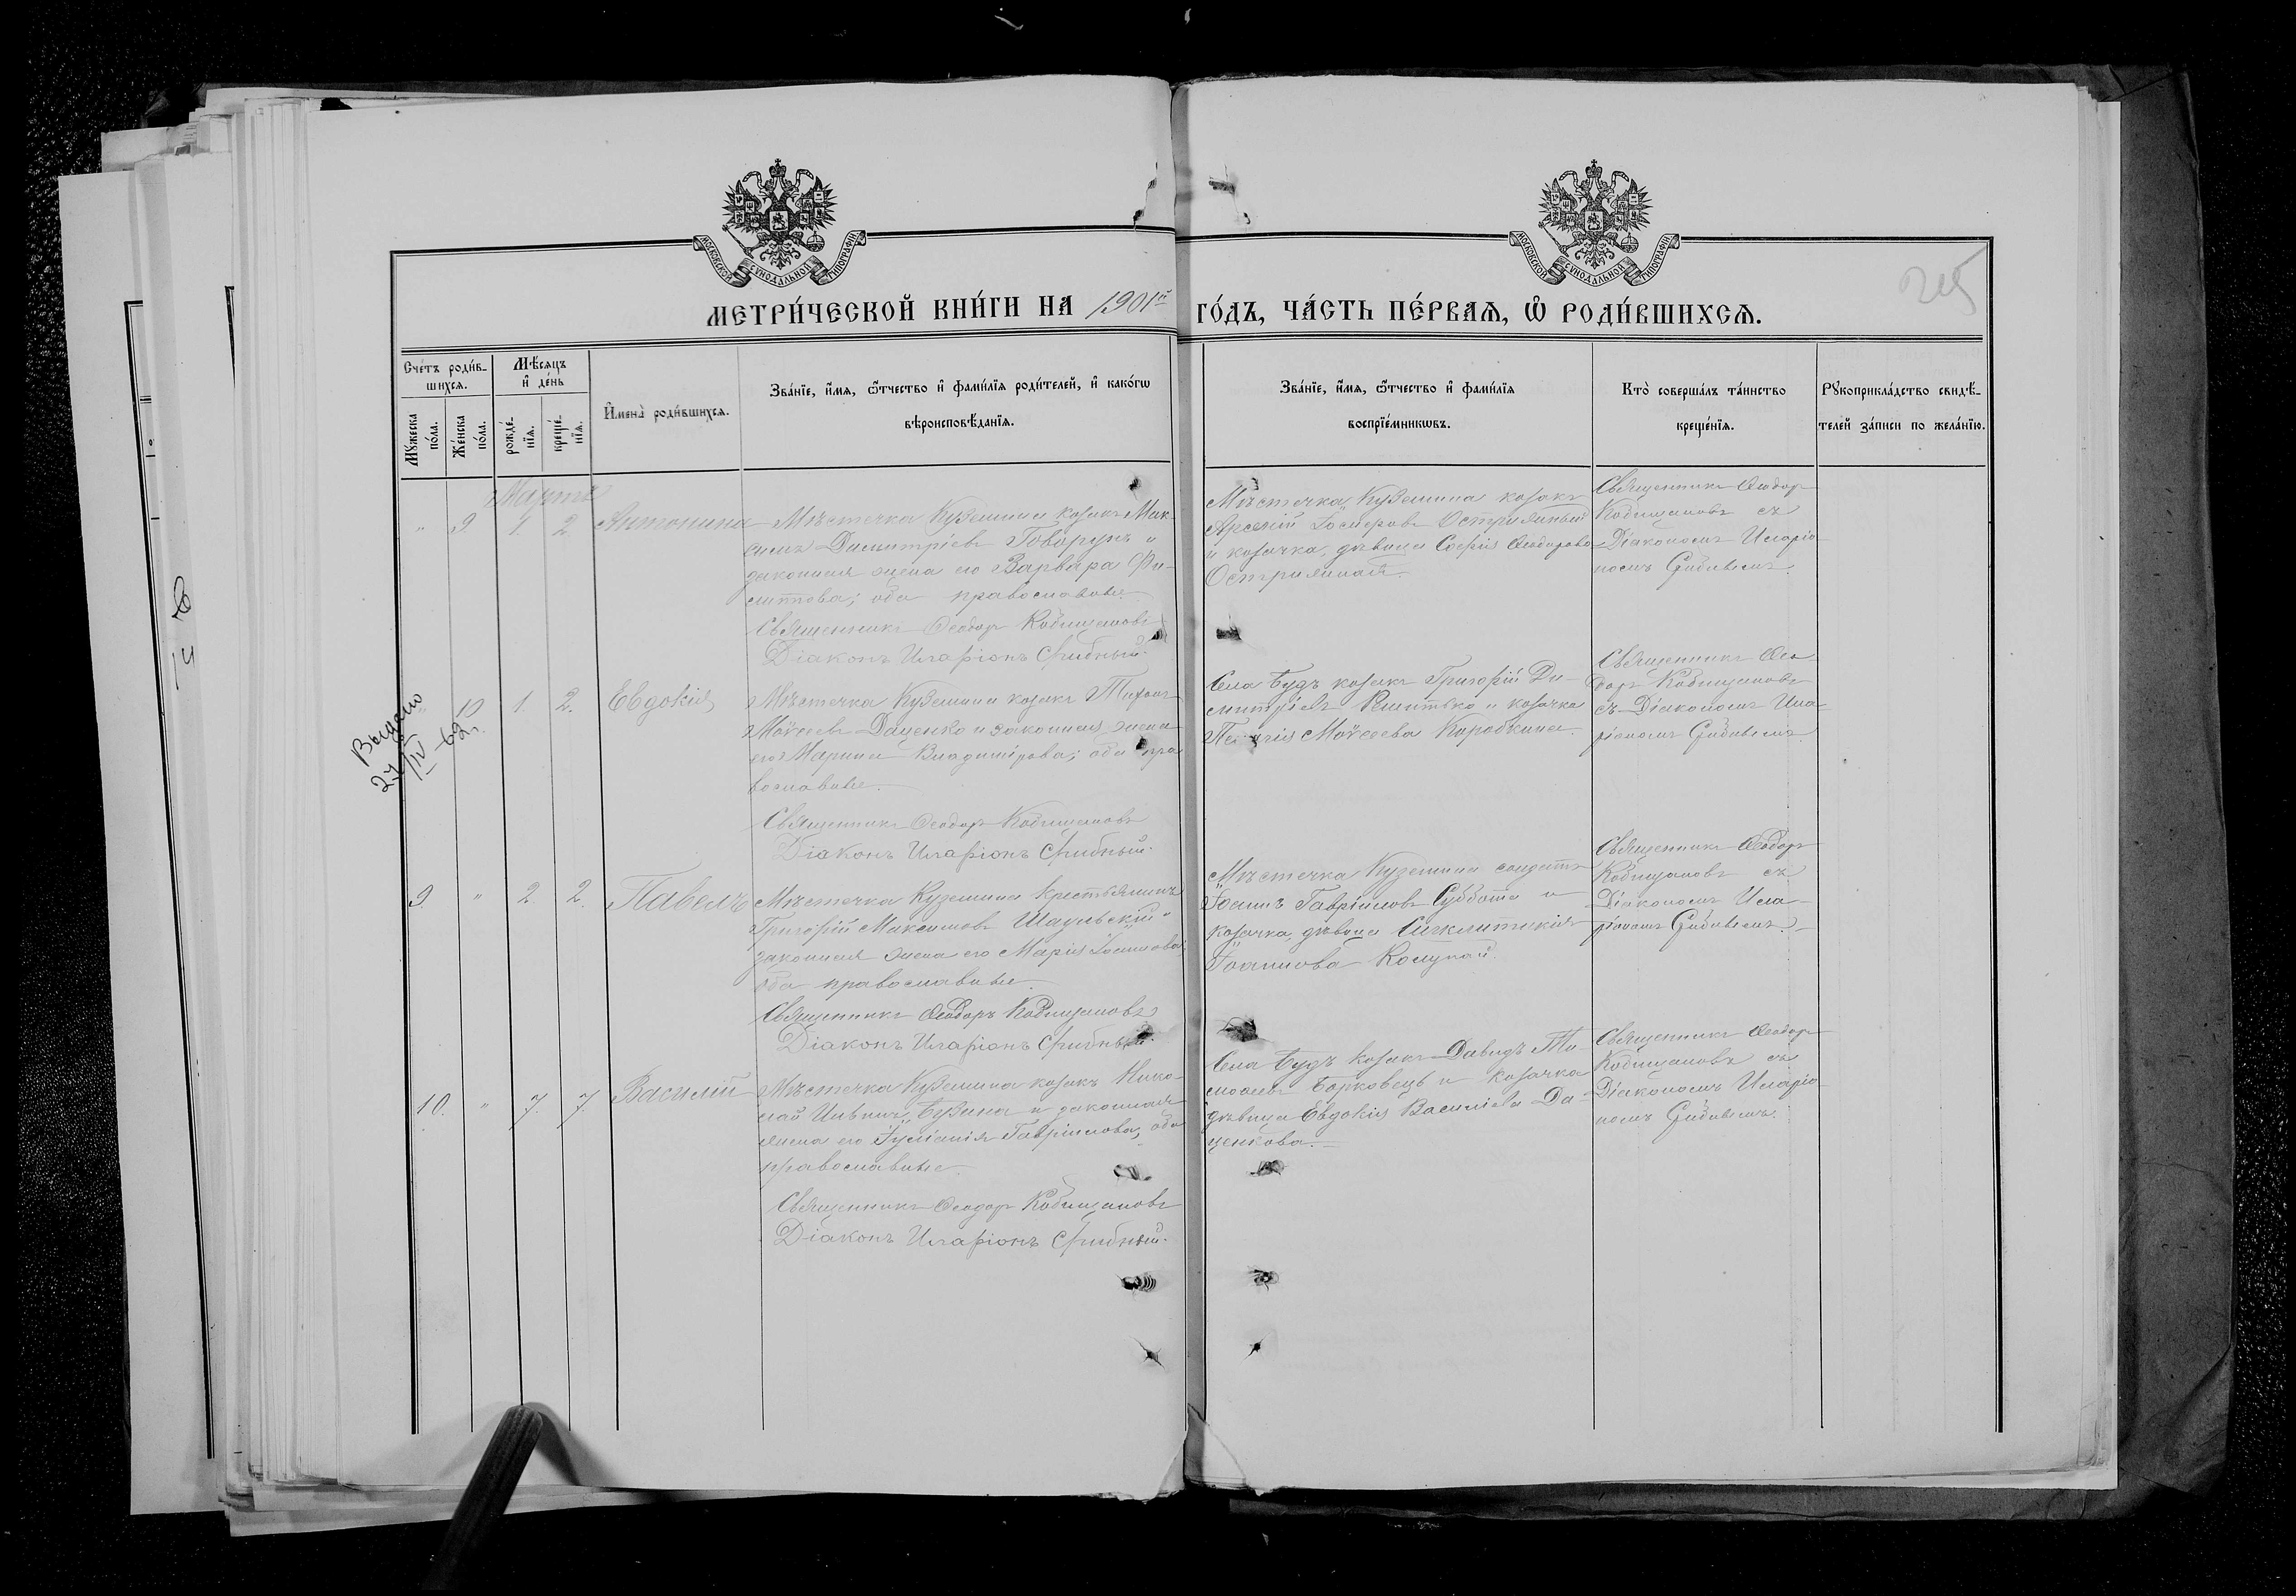 МОСКОВСКОЙ СУНОДАЛЬНОЙ ТИПОГРАФІИ
МОСКОВСКОЙ СУНОДАЛЬНОЙ ТИПОГРАФІИ
МЕТРИ́ЧЕСКОЙ КНИ́ГИ НА 1901й ГО́ДЪ, ЧА́СТЬ ПЕ́РВАѦ, Ѡ҆ РОДИ́ВШИХСѦ.
Сче́тъ роди́в-
шихсѧ.
Мꙋ́жеска
по́ла.
Же́нска
по́ла.
Мѣ́сѧцъ
и҆ де́нь
рожде́-
нїѧ.
креще́-
нїѧ.
И҆мена̀ роди́вшихсѧ.
Зва́нїе, и҆́мѧ, ѻ҆́тчество и҆ фами́лїѧ роди́телей, и҆ како́гѡ
вѣроисповѣ́данїѧ.
Зва́нїе, и҆́мѧ, ѻ҆́тчество и҆ фами́лїѧ
воспрїе́мникѡвъ.
Кто̀ соверша́лъ та́инство
креще́нїѧ.
Рꙋкоприкла́дство свидѣ́-
телей за́писи по жела́нїю.
Мартъ
" 9. 1. 2. Антонина
Мѣстечка Куземина козакъ Мак-
симъ Димитріевъ Говорунъ и
законная жена его Варвара Фи-
липпова; оба православные.
Священникъ Ѳеодоръ Кобищановъ
Діаконъ Иларіонъ Срибный.
Мѣстечка Куземина козакъ
Арсеній Іосифовъ Остримный
и козачка, дѣвица Софія Ѳеодорова
Остримная.
Священникъ Ѳеодоръ
Кобищановъ съ
Діакономъ Иларіо-
номъ Срибнымъ.
Выдано
27/IV-62г.
" 10 1. 2. Евдокія
Мѣстечка Куземина козакъ Тихонъ
Моѵсеевъ Даценко и законная жена
его Марина Владимірова; оба пра-
вославные.
Священникъ Ѳеодоръ Кобищановъ
Діаконъ Иларіонъ Срибный.
Села Будъ козакъ Григорій Ди-
митріевъ Решитько и козачка
Моѵсеева Коробкина.
Священникъ Ѳео-
доръ Кобищановъ
съ Діакономъ Ила-
ріономъ Срибнымъ.
9. " 2. 2. Павелъ
Мѣстечка Куземина крестьянинъ
Григорій Максимовъ и
законная жена его Марія Іоаннова;
оба православные.
Священникъ Ѳеодоръ Кобищановъ
Діаконъ Иларіонъ Срибный.
Мѣстечка Куземина солдатъ
Іоаннъ Гавріиловъ Суббота и
козачка, дѣвица Сигклитикія
Іоаннова
Священникъ Ѳеодоръ
Кобищановъ съ
Діакономъ Ила-
ріономъ Срибнымъ.
10. " 7. 7. Василій
Мѣстечка Куземина козакъ Нико-
лай Ильинъ и законная
жена его Іуліанія Гавріилова; оба
православные.
Священникъ Ѳеодоръ Кобищановъ
Діаконъ Иларіонъ Срибный.
Села Будъ козакъ Давидъ Ти-
моѳеевъ Борковецъ и козачка
дѣвица Евдокія Василіева Да-
ценкова.
Священникъ Ѳеодоръ
Кобищановъ съ
Діакономъ Иларіо-
номъ Срибнымъ.